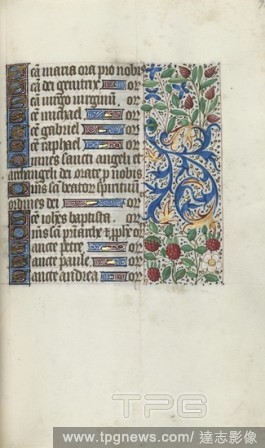 Sca maria ora pro nobis
Sca dei genitrix or
Sca virgo virginū or
Sce michael or
Sce gabriel or
Sce raphael or
Omnes sancti angeli et
archangeli dei orate p nobis
Oms sci beatoꝝ spirituū
ordines dei or
Sce iohēs baptista or
Oms sci priarche et pphe or
Sancte petre or
Sancte paule or
Sancte andrea or
TPG
www.tpgnews.com / 達志影像